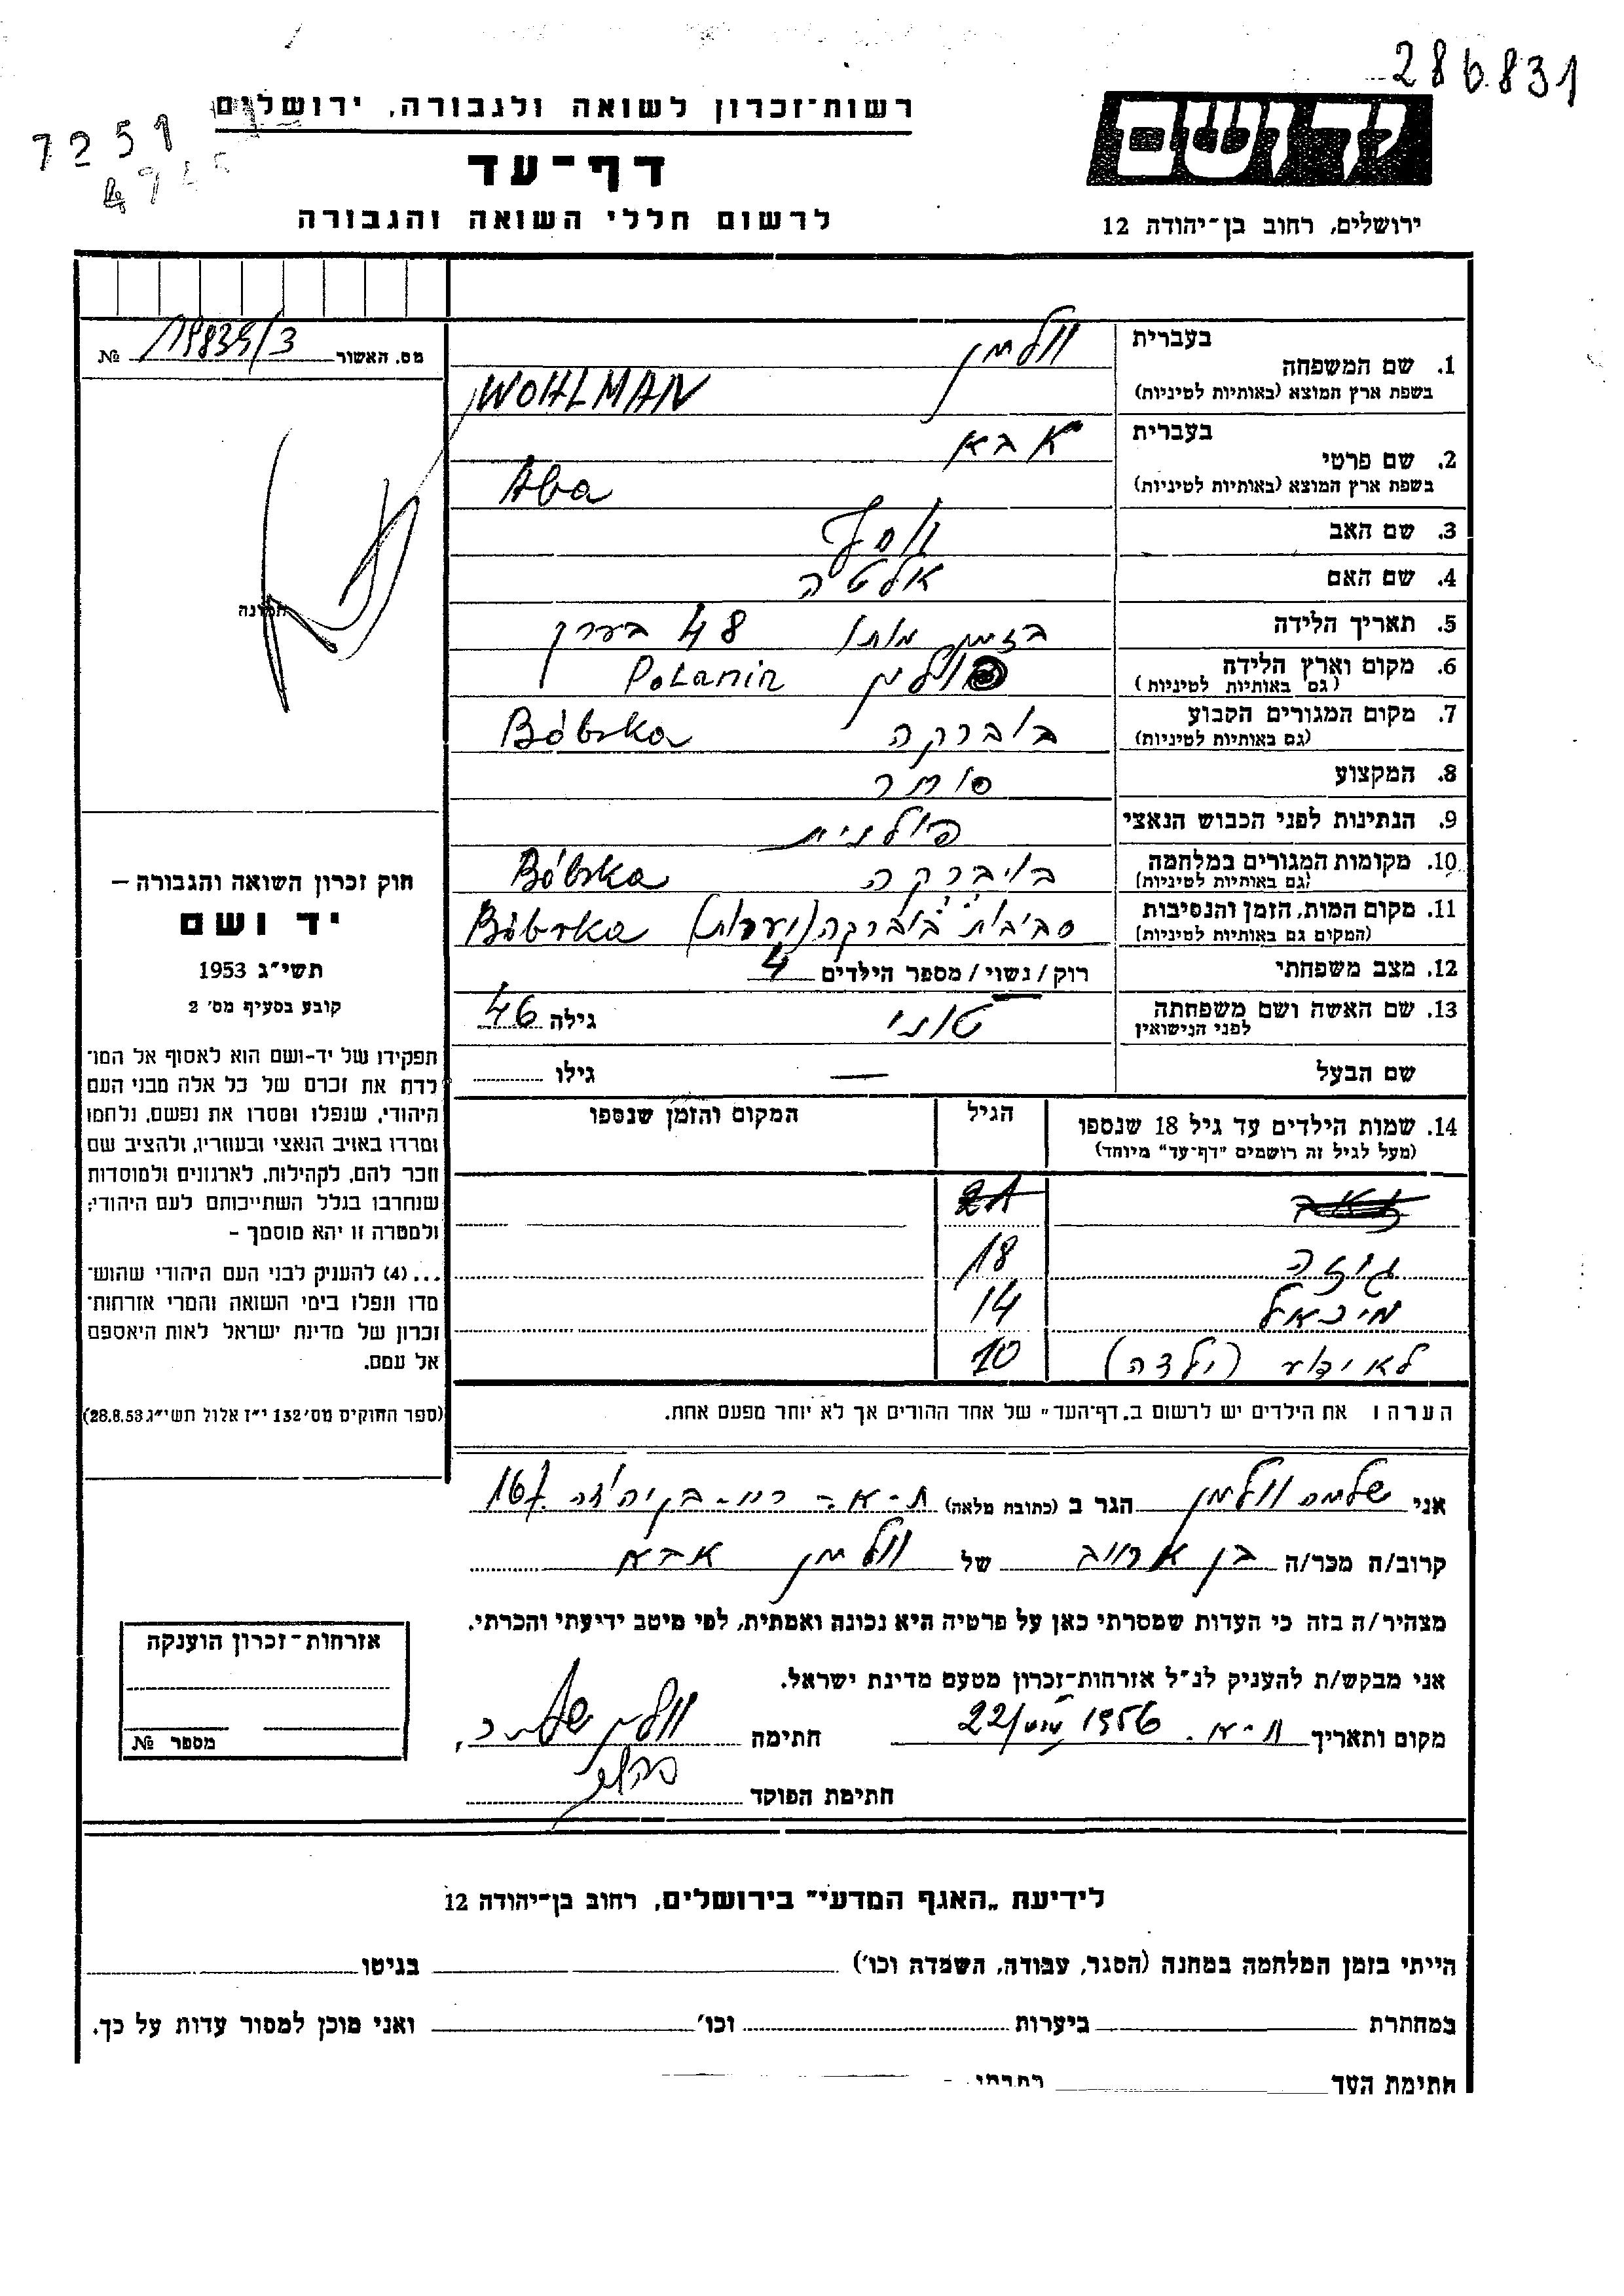 286.831
7251
רשות־זכרון לשואה ולגבורה, ירושלים
דף־עד
לרשום חללי השואה והגבורה
ידושם
ירושלים, רחוב בן־יהודה 12
מס. האשור 119839/3 №
בעברית וולמן
1. שם המשפחה
בשפת ארץ המוצא (באותיות לטיניות) WOHLMAN
בעברית אבא
2. שם פרטי
בשפת ארץ המוצא (באותיות לטיניות) Aba
3. שם האב
4. שם האם אלטה
5. תאריך הלידה בזמן מותו 48 בערך
6. מקום וארץ הלידה
(גם באותיות לטיניות) Polanin
7. מקום המגורים הקבוע בוברקה Bóbrka
(גם באותיות לטיניות)
8. המקצוע סוחר
9. הנתינות לפני הכבוש הנאצי פולנית
10. מקומות המגורים במלחמה בויברקה Bóbrka
(גם באותיות לטיניות)
11. מקום המות, הזמן והנסיבות סביבות בוברקה (יערות) Bóbrka
(המקום גם באותיות לטיניות)
12. מצב משפחתי רוק / נשוי / מספר הילדים 4
13. שם האשה ושם משפחתה טוני גילה 46
לפני הנישואין
שם הבעל — גילו
14. שמות הילדים עד גיל 18 שנספו הגיל המקום והזמן שנספו
(מעל לגיל זה רושמים "דף־עד" מיוחד)
21
גיזה 18
מיכאל 14
לא ידוע (ילדה) 10
הערה ו את הילדים יש לרשום ב„דף־העד" של אחד ההורים אך לא יותר מפעם אחת.
תמונה
חוק זכרון השואה והגבורה –
יד ושם
תשי״ג 1953
קובע בסעיף מס׳ 2
תפקידו של יד-ושם הוא לאסוף אל המו־
לדת את זכרם של כל אלה מבני העם
היהודי, שנפלו ומסרו את נפשם, נלחמו
ומרדו באויב הנאצי ובעוזריו, ולהציב שם
וזכר להם, לקהילות, לארגונים ולמוסדות
שנחרבו בגלל השתייכותם לעם היהודי;
ולמטרה זו יהא מוסמך –
... (4) להעניק לבני העם היהודי שהוש־
מדו ונפלו בימי השואה והמרי אזרחות־
זכרון של מדינת ישראל לאות היאספם
אל עמם.
(ספר החוקים מס׳ 132 י״ז אלול תשי״ג 28.8.53)
אני שלמה וולמן הגר ב (כתובת מלאה) ת-א - רח- בן יהודה 167
קרוב/ה מכר/ה בן אחיו של וולמן אבא
מצהיר/ה בזה כי העדות שמסרתי כאן על פרטיה היא נכונה ואמתית, לפי מיטב ידיעתי והכרתי.
אני מבקש/ת להעניק לנ״ל אזרחות־זכרון מטעם מדינת ישראל.
מקום ותאריך ת-א. 22/VIII 1956 חתימה וולמן שלמה
חתימת הפוקד
אזרחות־זכרון הוענקה
מספר №
לידיעת „האגף המדעי" בירושלים, רחוב בן־יהודה 12
הייתי בזמן המלחמה במחנה (הסגר, עבודה, השמדה וכו׳) בגיטו
במחתרת ביערות וכו׳ ואני מוכן למסור עדות על כך.
חתימת העד